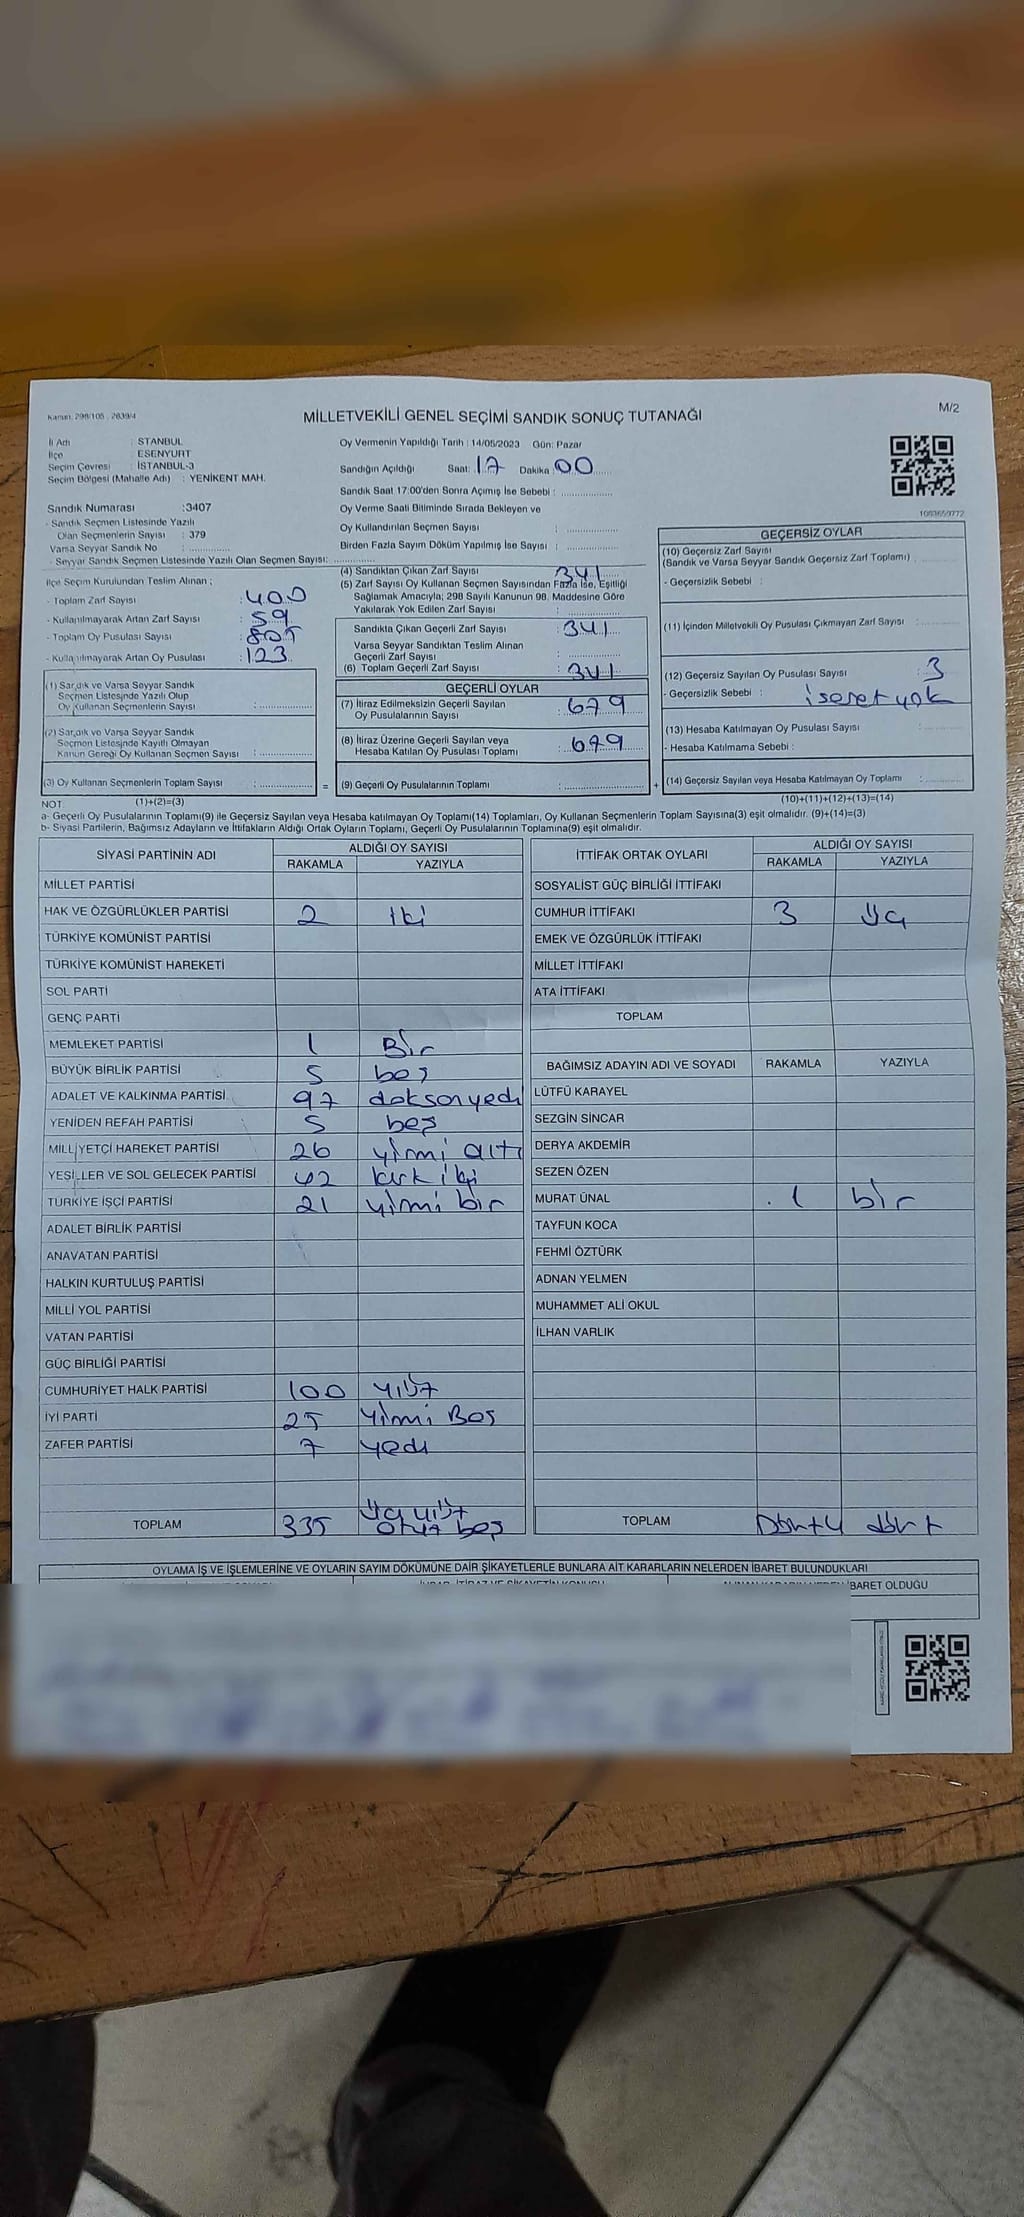 Kanun: 298/105 . 2839/4
MİLLETVEKİLİ GENEL SEÇİMİ SANDIK SONUÇ TUTANAĞI
M/2
İl Adı : STANBUL
İlçe : ESENYURT
Seçim Çevresi : İSTANBUL-3
Seçim Bölgesi (Mahalle Adı) : YENİKENT MAH.
Oy Vermenin Yapıldığı Tarih : 14/05/2023 Gün: Pazar
Sandığın Açıldığı Saat: 17 Dakika 00
Sandık Saat 17:00'den Sonra Açımış İse Sebebi :
Oy Verme Saati Bitiminde Sırada Bekleyen ve
Oy Kullandırılan Seçmen Sayısı :
Birden Fazla Sayım Döküm Yapılmış İse Sayısı :
Sandık Numarası :3407
- Sandık Seçmen Listesinde Yazılı
Olan Seçmenlerin Sayısı : 379
Varsa Seyyar Sandık No :
- Seyyar Sandık Seçmen Listesinde Yazılı Olan Seçmen Sayısı:
İlçe Seçim Kurulundan Teslim Alınan ;
- Toplam Zarf Sayısı : 400
- Kullanılmayarak Artan Zarf Sayısı : 59
- Toplam Oy Pusulası Sayısı : 805
- Kullanılmayarak Artan Oy Pusulası : 123
(1) Sandık ve Varsa Seyyar Sandık
Seçmen Listesinde Yazılı Olup
Oy Kullanan Seçmenlerin Sayısı :
(2) Sandık ve Varsa Seyyar Sandık
Seçmen Listesinde Kayıtlı Olmayan
Kanun Gereği Oy Kullanan Seçmen Sayısı :
(3) Oy Kullanan Seçmenlerin Toplam Sayısı : =
(4) Sandıktan Çıkan Zarf Sayısı 341
(5) Zarf Sayısı Oy Kullanan Seçmen Sayısından Fazla İse, Eşitliği
Sağlamak Amacıyla; 298 Sayılı Kanunun 98. Maddesine Göre
Yakılarak Yok Edilen Zarf Sayısı :
Sandıkta Çıkan Geçerli Zarf Sayısı : 341
Varsa Seyyar Sandıktan Teslim Alınan
Geçerli Zarf Sayısı :
(6) Toplam Geçerli Zarf Sayısı : 341
GEÇERLİ OYLAR
(7) İtiraz Edilmeksizin Geçerli Sayılan
Oy Pusulalarının Sayısı : 679
(8) İtiraz Üzerine Geçerli Sayılan veya
Hesaba Katılan Oy Pusulası Toplamı : 679
(9) Geçerli Oy Pusulalarının Toplamı : +
1083659772
GEÇERSİZ OYLAR
(10) Geçersiz Zarf Sayısı
(Sandık ve Varsa Seyyar Sandık Geçersiz Zarf Toplamı)
- Geçersizlik Sebebi :
(11) İçinden Milletvekili Oy Pusulası Çıkmayan Zarf Sayısı :
(12) Geçersiz Sayılan Oy Pusulası Sayısı : 3
- Geçersizlik Sebebi : iseret yok
(13) Hesaba Katılmayan Oy Pusulası Sayısı :
- Hesaba Katılmama Sebebi :
(14) Geçersiz Sayılan veya Hesaba Katılmayan Oy Toplamı :
NOT (1)+(2)=(3) (10)+(11)+(12)+(13)=(14)
a- Geçerli Oy Pusulalarının Toplamı(9) ile Geçersiz Sayılan veya Hesaba katılmayan Oy Toplamı(14) Toplamları, Oy Kullanan Seçmenlerin Toplam Sayısına(3) eşit olmalıdır. (9)+(14)=(3)
b- Siyasi Partilerin, Bağımsız Adayların ve İttifakların Aldığı Ortak Oyların Toplamı, Geçerli Oy Pusulalarının Toplamına(9) eşit olmalıdır.
SİYASİ PARTİNİN ADI ALDIĞI OY SAYISI
RAKAMLA YAZIYLA
MİLLET PARTİSİ
HAK VE ÖZGÜRLÜKLER PARTİSİ 2 iki
TÜRKİYE KOMÜNİST PARTİSİ
TÜRKİYE KOMÜNİST HAREKETİ
SOL PARTİ
GENÇ PARTİ
MEMLEKET PARTİSİ 1 Bir
BÜYÜK BİRLİK PARTİSİ 5 beş
ADALET VE KALKINMA PARTİSİ 97 doksanyedi
YENİDEN REFAH PARTİSİ 5 beş
MİLLİYETÇİ HAREKET PARTİSİ 26 yirmi altı
YEŞİLLER VE SOL GELECEK PARTİSİ 42 kırk iki
TÜRKİYE İŞÇİ PARTİSİ 21 yirmi bir
ADALET BİRLİK PARTİSİ
ANAVATAN PARTİSİ
HALKIN KURTULUŞ PARTİSİ
MİLLİ YOL PARTİSİ
VATAN PARTİSİ
GÜÇ BİRLİĞİ PARTİSİ
CUMHURİYET HALK PARTİSİ 100 yüz
İYİ PARTİ 25 yirmi Beş
ZAFER PARTİSİ 7 yedi
TOPLAM 335 üç yüz otuz beş
İTTİFAK ORTAK OYLARI ALDIĞI OY SAYISI
RAKAMLA YAZIYLA
SOSYALİST GÜÇ BİRLİĞİ İTTİFAKI
CUMHUR İTTİFAKI 3 üç
EMEK VE ÖZGÜRLÜK İTTİFAKI
MİLLET İTTİFAKI
ATA İTTİFAKI
TOPLAM
BAĞIMSIZ ADAYIN ADI VE SOYADI RAKAMLA YAZIYLA
LÜTFÜ KARAYEL
SEZGİN SİNCAR
DERYA AKDEMİR
SEZEN ÖZEN
MURAT ÜNAL 1 bir
TAYFUN KOCA
FEHMİ ÖZTÜRK
ADNAN YELMEN
MUHAMMET ALİ OKUL
İLHAN VARLIK
TOPLAM dört
OYLAMA İŞ VE İŞLEMLERİNE VE OYLARIN SAYIM DÖKÜMÜNE DAİR ŞİKAYETLERLE BUNLARA AİT KARARLARIN NELERDEN İBARET BULUNDUKLARI
İBARET OLDUĞU